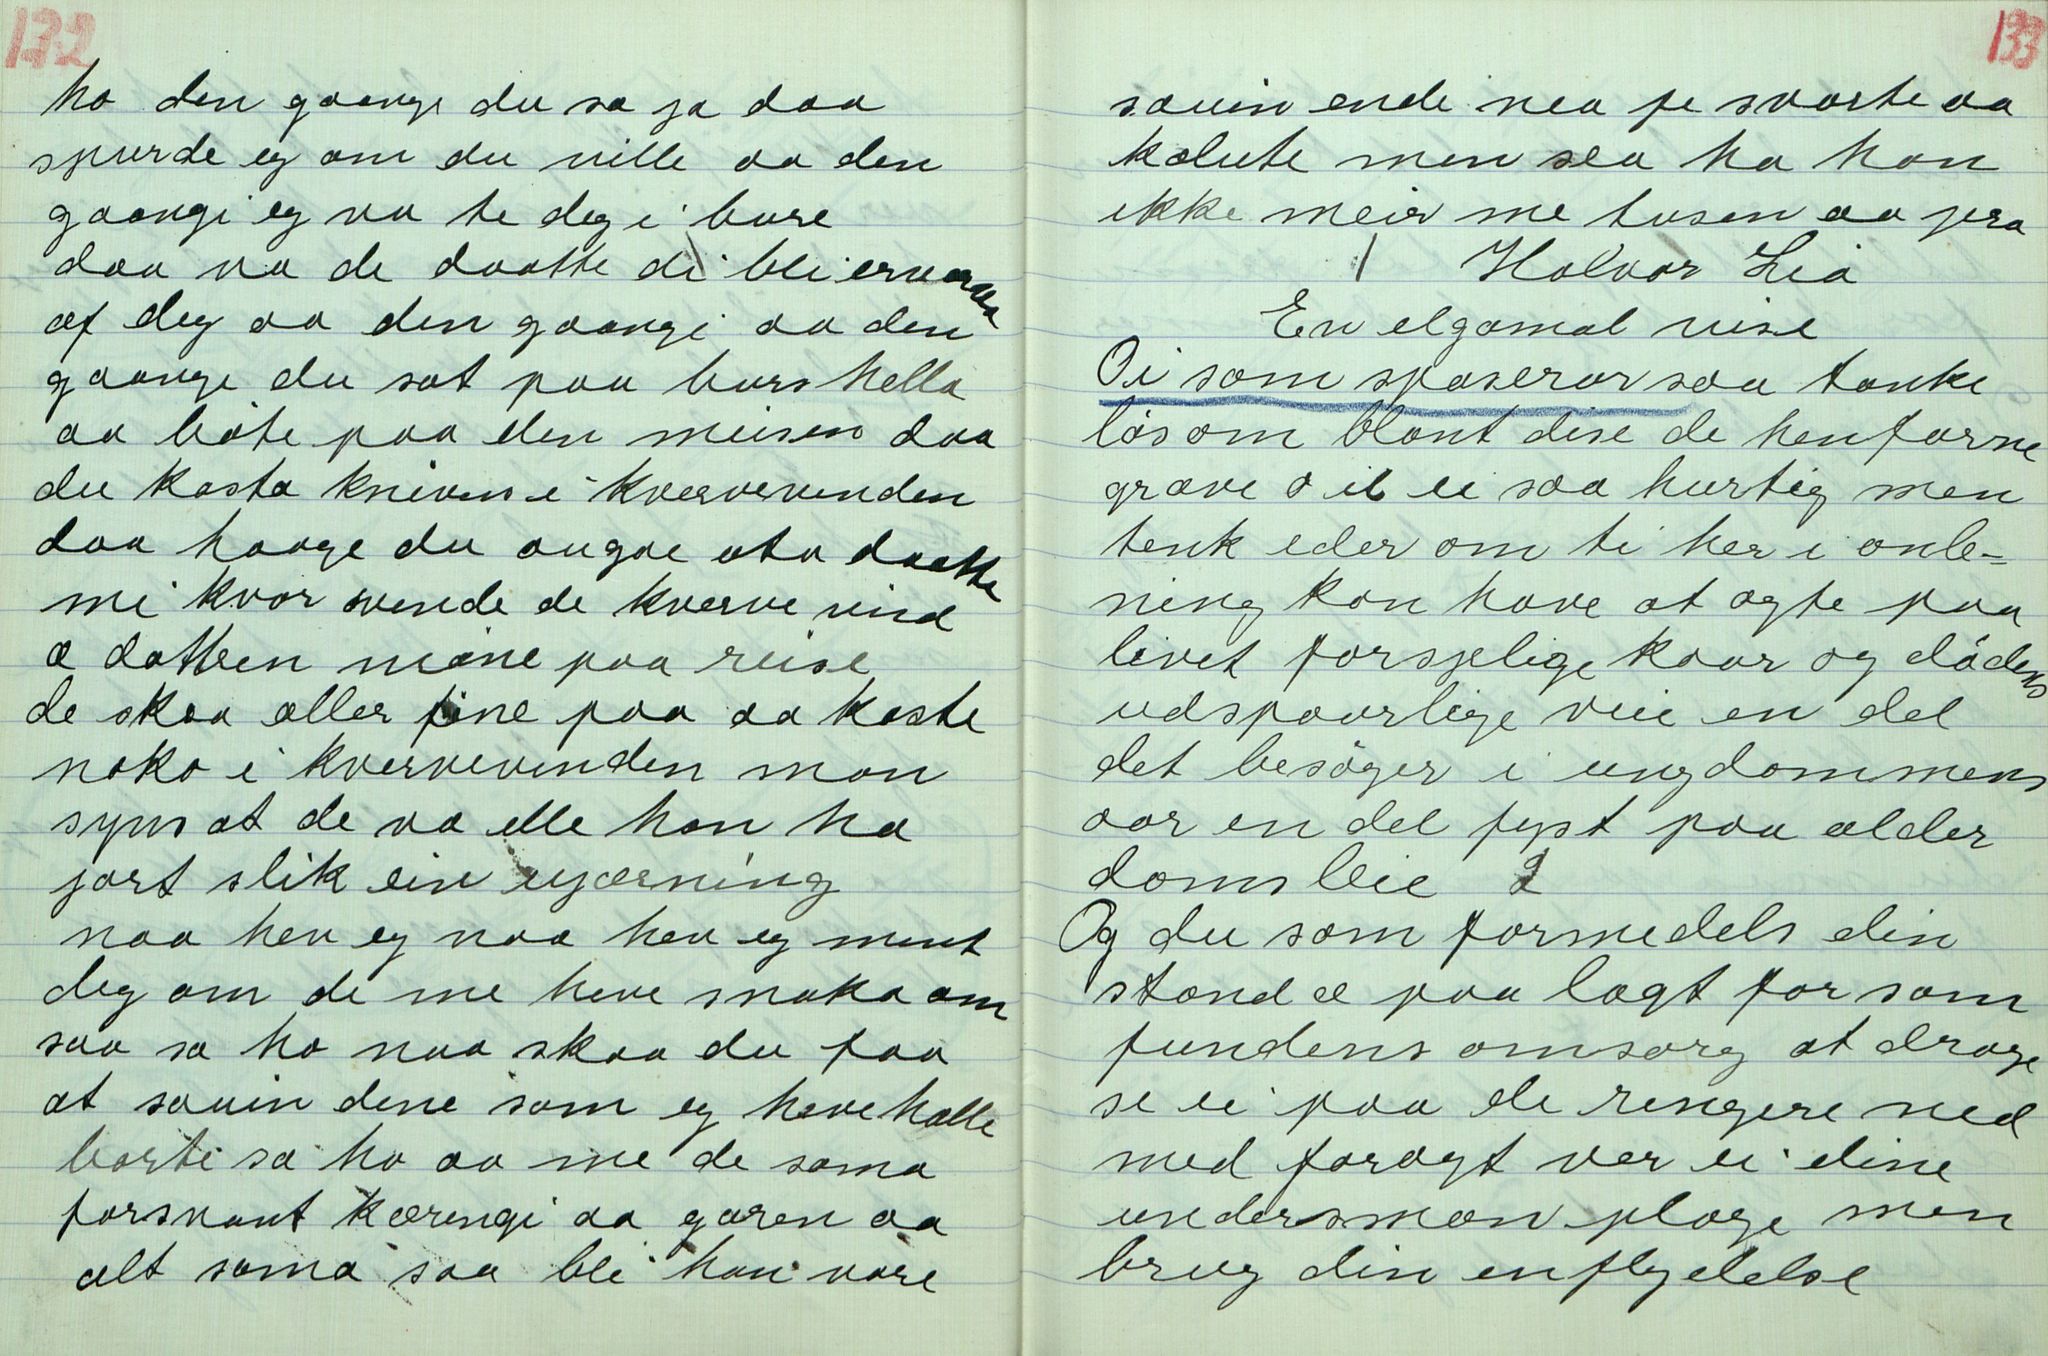 132
ho den gaange du sa ja daa
spurde eg om du ville aa den
gaangi eg va te deg i bure
daa va de daatte di blei
af deg aa den gaangi aa den
gaange du sat paa burs hella
aa bøte paa den meisen daa
du kasta kniven i kvervevinden
daa haage du augae uta daatte
mi kvor svende de kverve vind
æ dottren mine paa reise
de skaa aller fine paa aa kaste
noko i kvervevinden man
syns at de va elle han ha
jort slik ein ugjærning
naa hev eg naa hev eg mint
deg om de me heve snaka om
saa sa ho naa skaa du faa
at sauin dene som eg heve halle
borti sa ho aa me de sama
forsvant kærengi aa garen aa
alt sama saa blei han vare
133
sauin ende nea fe svarte aa
kolute men sea ha han
ikke meir me tusen aa jera
1 Halvor Lia
En elgamal vise
O i som spaserar saa tanke
løs om blant dise de henfarne
grave o il ei saa hurtig men
tenk eder om ti her i anle-
ning kan have at agte paa
livet forsjelige kaar og dødens
udspaarlige veie en del
det besøger i ungdommens
aar en del fyst paa alder
doms leie 2
Og du som formedels din
stand æ paa lagt for sam
fundens omsorg at drage
se ei paa de ringere ned
med foragt ver ei dine
undersmæn plage men
brug din enflydelse